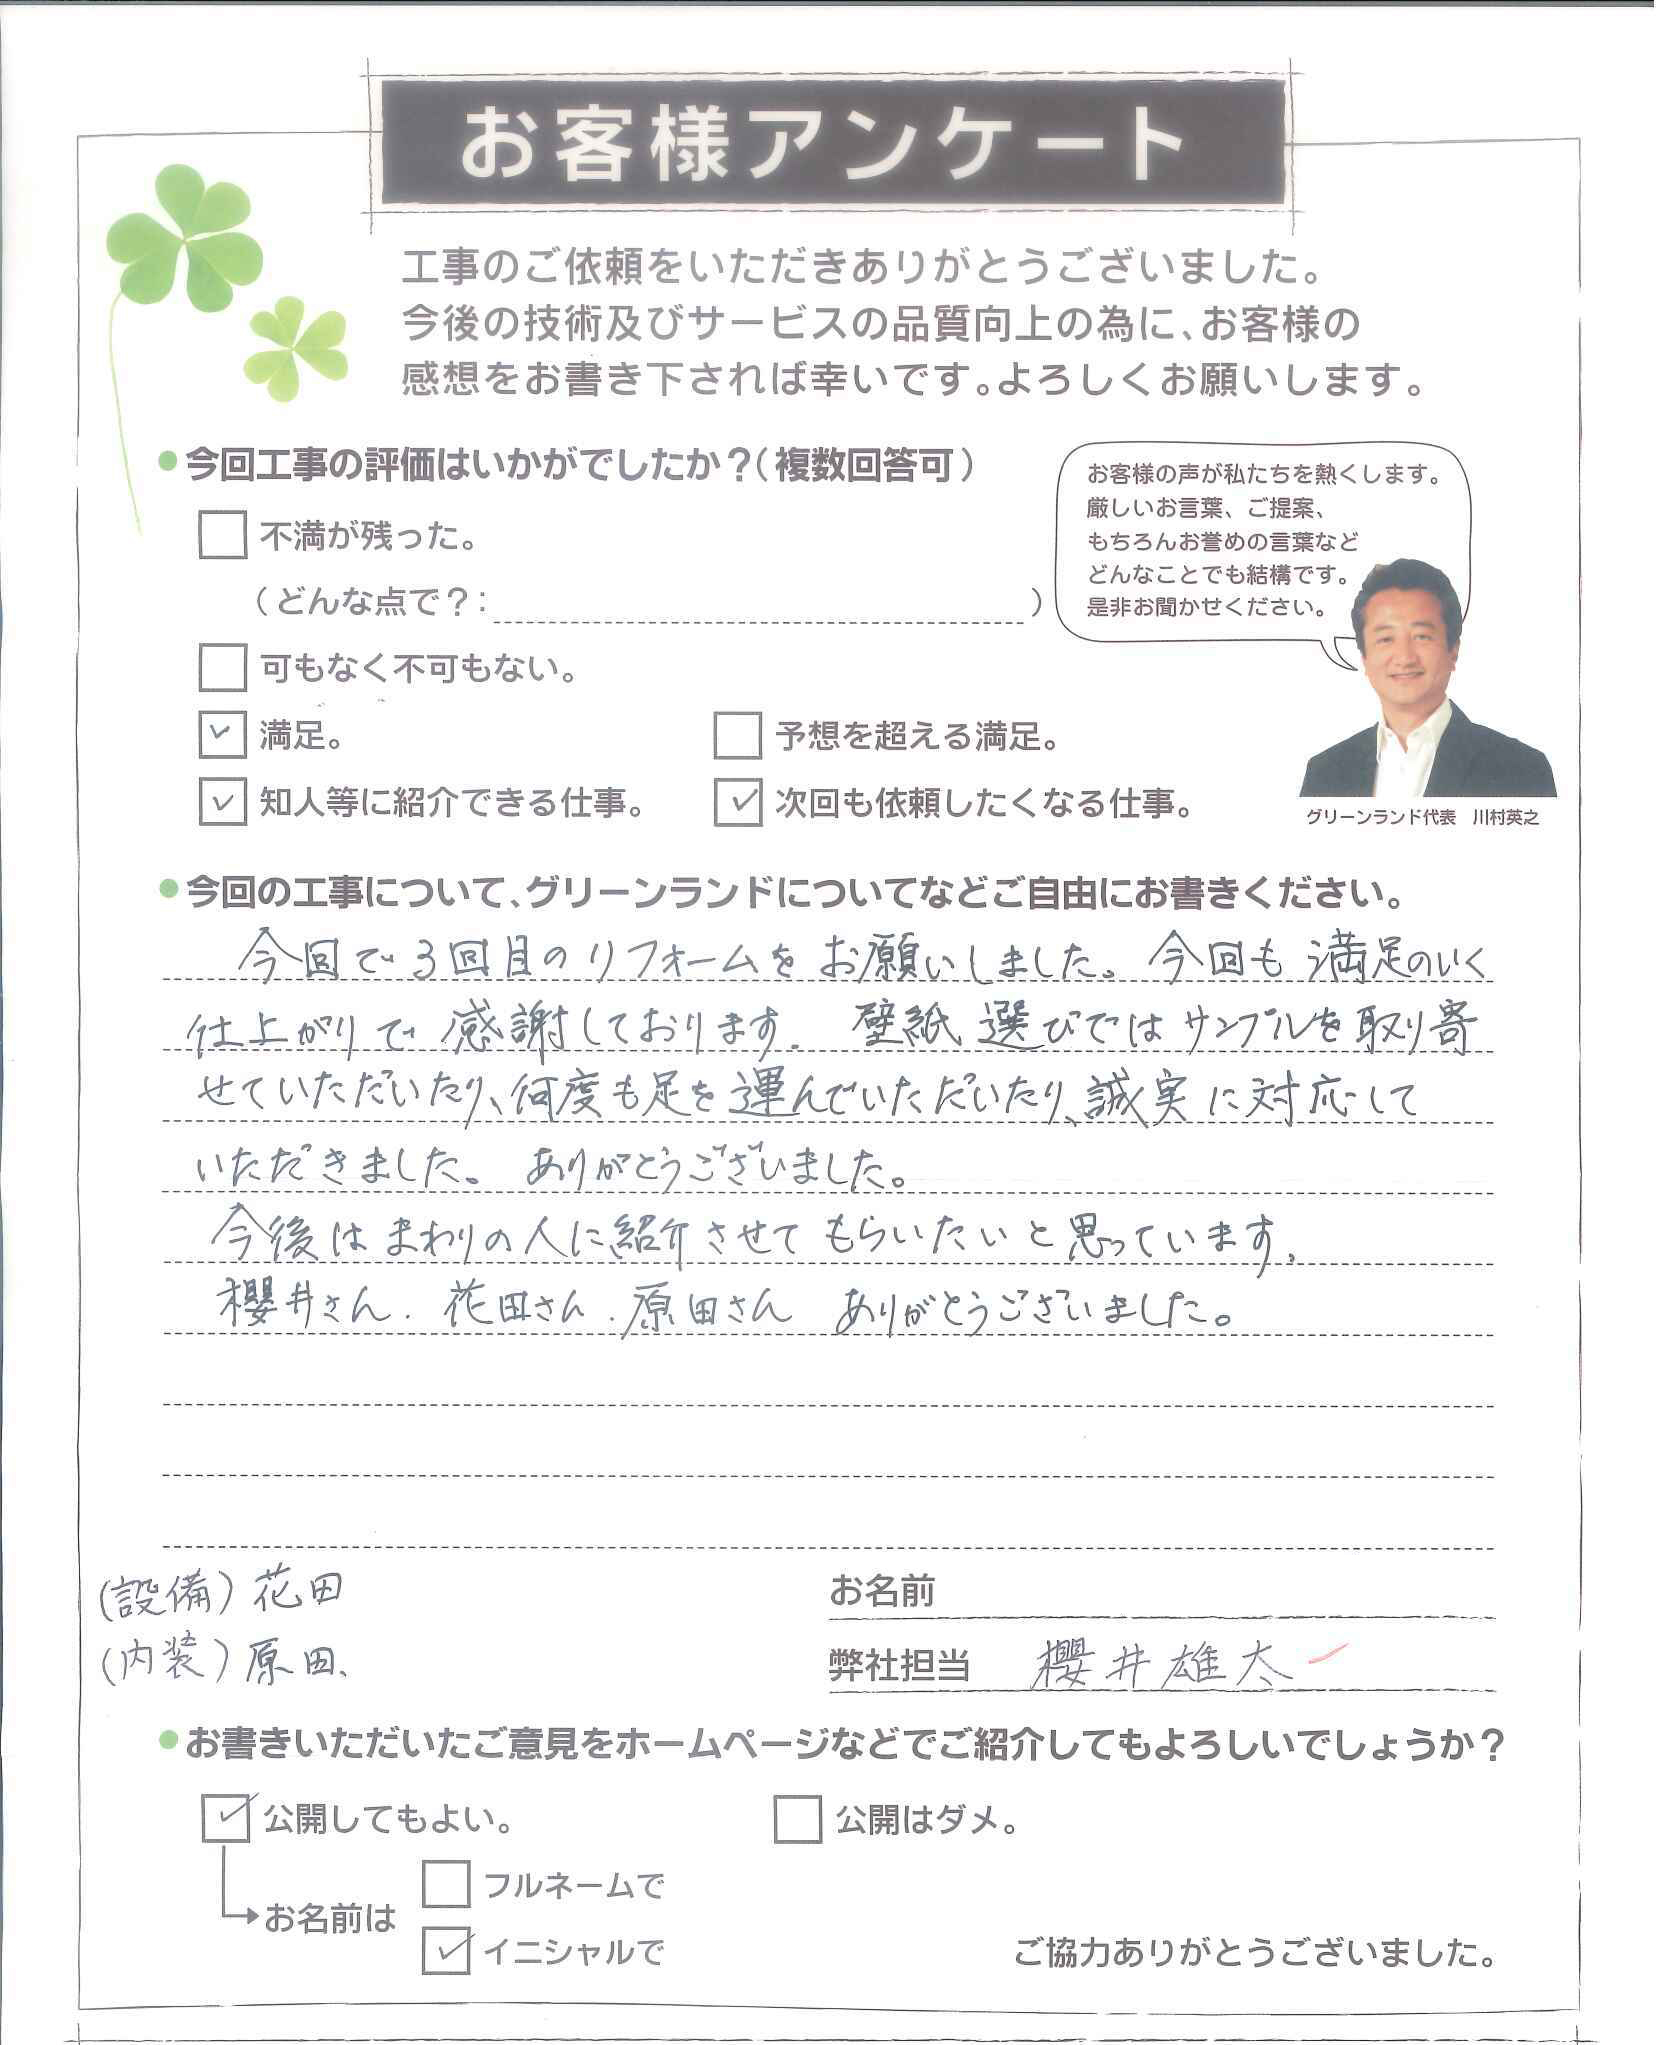 お客様アンケート
工事のご依頼をいただきありがとうございました。
今後の技術及びサービスの品質向上の為に、お客様の
感想をお書き下されば幸いです。よろしくお願いします。
●今回工事の評価はいかがでしたか?(複数回答可)
不満が残った。
(どんな点で?: )
可もなく不可もない。
満足。
予想を超える満足。
知人等に紹介できる仕事。
次回も依頼したくなる仕事。
お客様の声が私たちを熱くします。
厳しいお言葉、ご提案、
もちろんお誉めの言葉など
どんなことでも結構です。
是非お聞かせください。
グリーンランド代表 川村英之
●今回の工事について、グリーンランドについてなどご自由にお書きください。
今回で3回目のリフォームをお願いしました。今回も満足のいく
仕上がりで感謝しております。壁紙選びではサンプルを取り寄
せていただいたり、何度も足を運んでいただいたり、誠実に対応して
いただきました。ありがとうございました。
今後はまわりの人に紹介させてもらいたいと思っています。
櫻井さん.花田さん.原田さん ありがとうございました。
(設備)花田
(内装)原田、
お名前
弊社担当 櫻井雄太
●お書きいただいたご意見をホームページなどでご紹介してもよろしいでしょうか?
公開してもよい。
公開はダメ。
お名前は
フルネームで
イニシャルで
ご協力ありがとうございました。